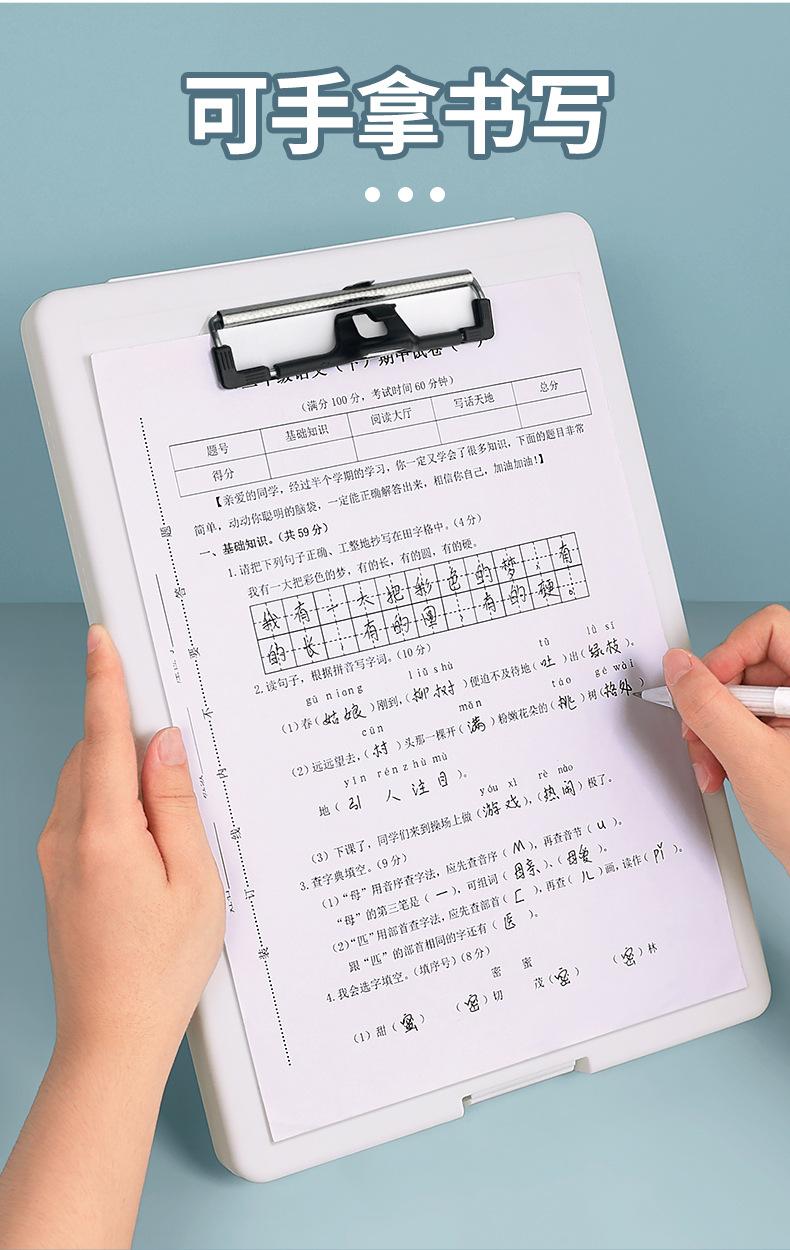 可手拿书写
级语文（下）期中试卷（一）
（满分 100 分，考试时间 60 分钟）
题号 基础知识 阅读大厅 写话天地 总分
得分
【亲爱的同学，经过半个学期的学习，你一定又学会了很多知识，下面的题目非常
简单，动动你聪明的脑袋，一定能正确解答出来，相信你自己，加油加油！】
一、基础知识。（共 59 分）
1. 请把下列句子正确、工整地抄写在田字格中。（4 分）
我有一大把彩色的梦，有的长，有的圆，有的硬。
我有一大把彩色的梦，有
的长，有的圆，有的硬。
2. 读句子，根据拼音写字词。（10 分）
gū niang liǔ shù tǔ lǜ sī
（1）春（姑娘）刚到，（柳树）便迫不及待地（吐）出（绿枝）。
cūn mǎn táo gé wài
（2）远远望去，（村）头那一棵开（满）粉嫩花朵的（桃）树（格外）
yǐn rén zhù mù
地（引人注目）。
yóu xì rè nào
（3）下课了，同学们来到操场上做（游戏），（热闹）极了。
3. 查字典填空。（9 分）
（1）“母”用音序查字法，应先查音序（M），再查音节（u）。
“母”的第三笔是（一），可组词（母亲）、（母爱）。
（2）“匹”用部首查字法，应先查部首（匚），再查（儿）画，读作（pǐ）。
跟“匹”的部首相同的字还有（医）。
4. 我会选字填空。（填序号）（8 分）
密 蜜
（1）甜（蜜） （密）切 茂（密） （密）林
题 答 要 不 内 线 订 装